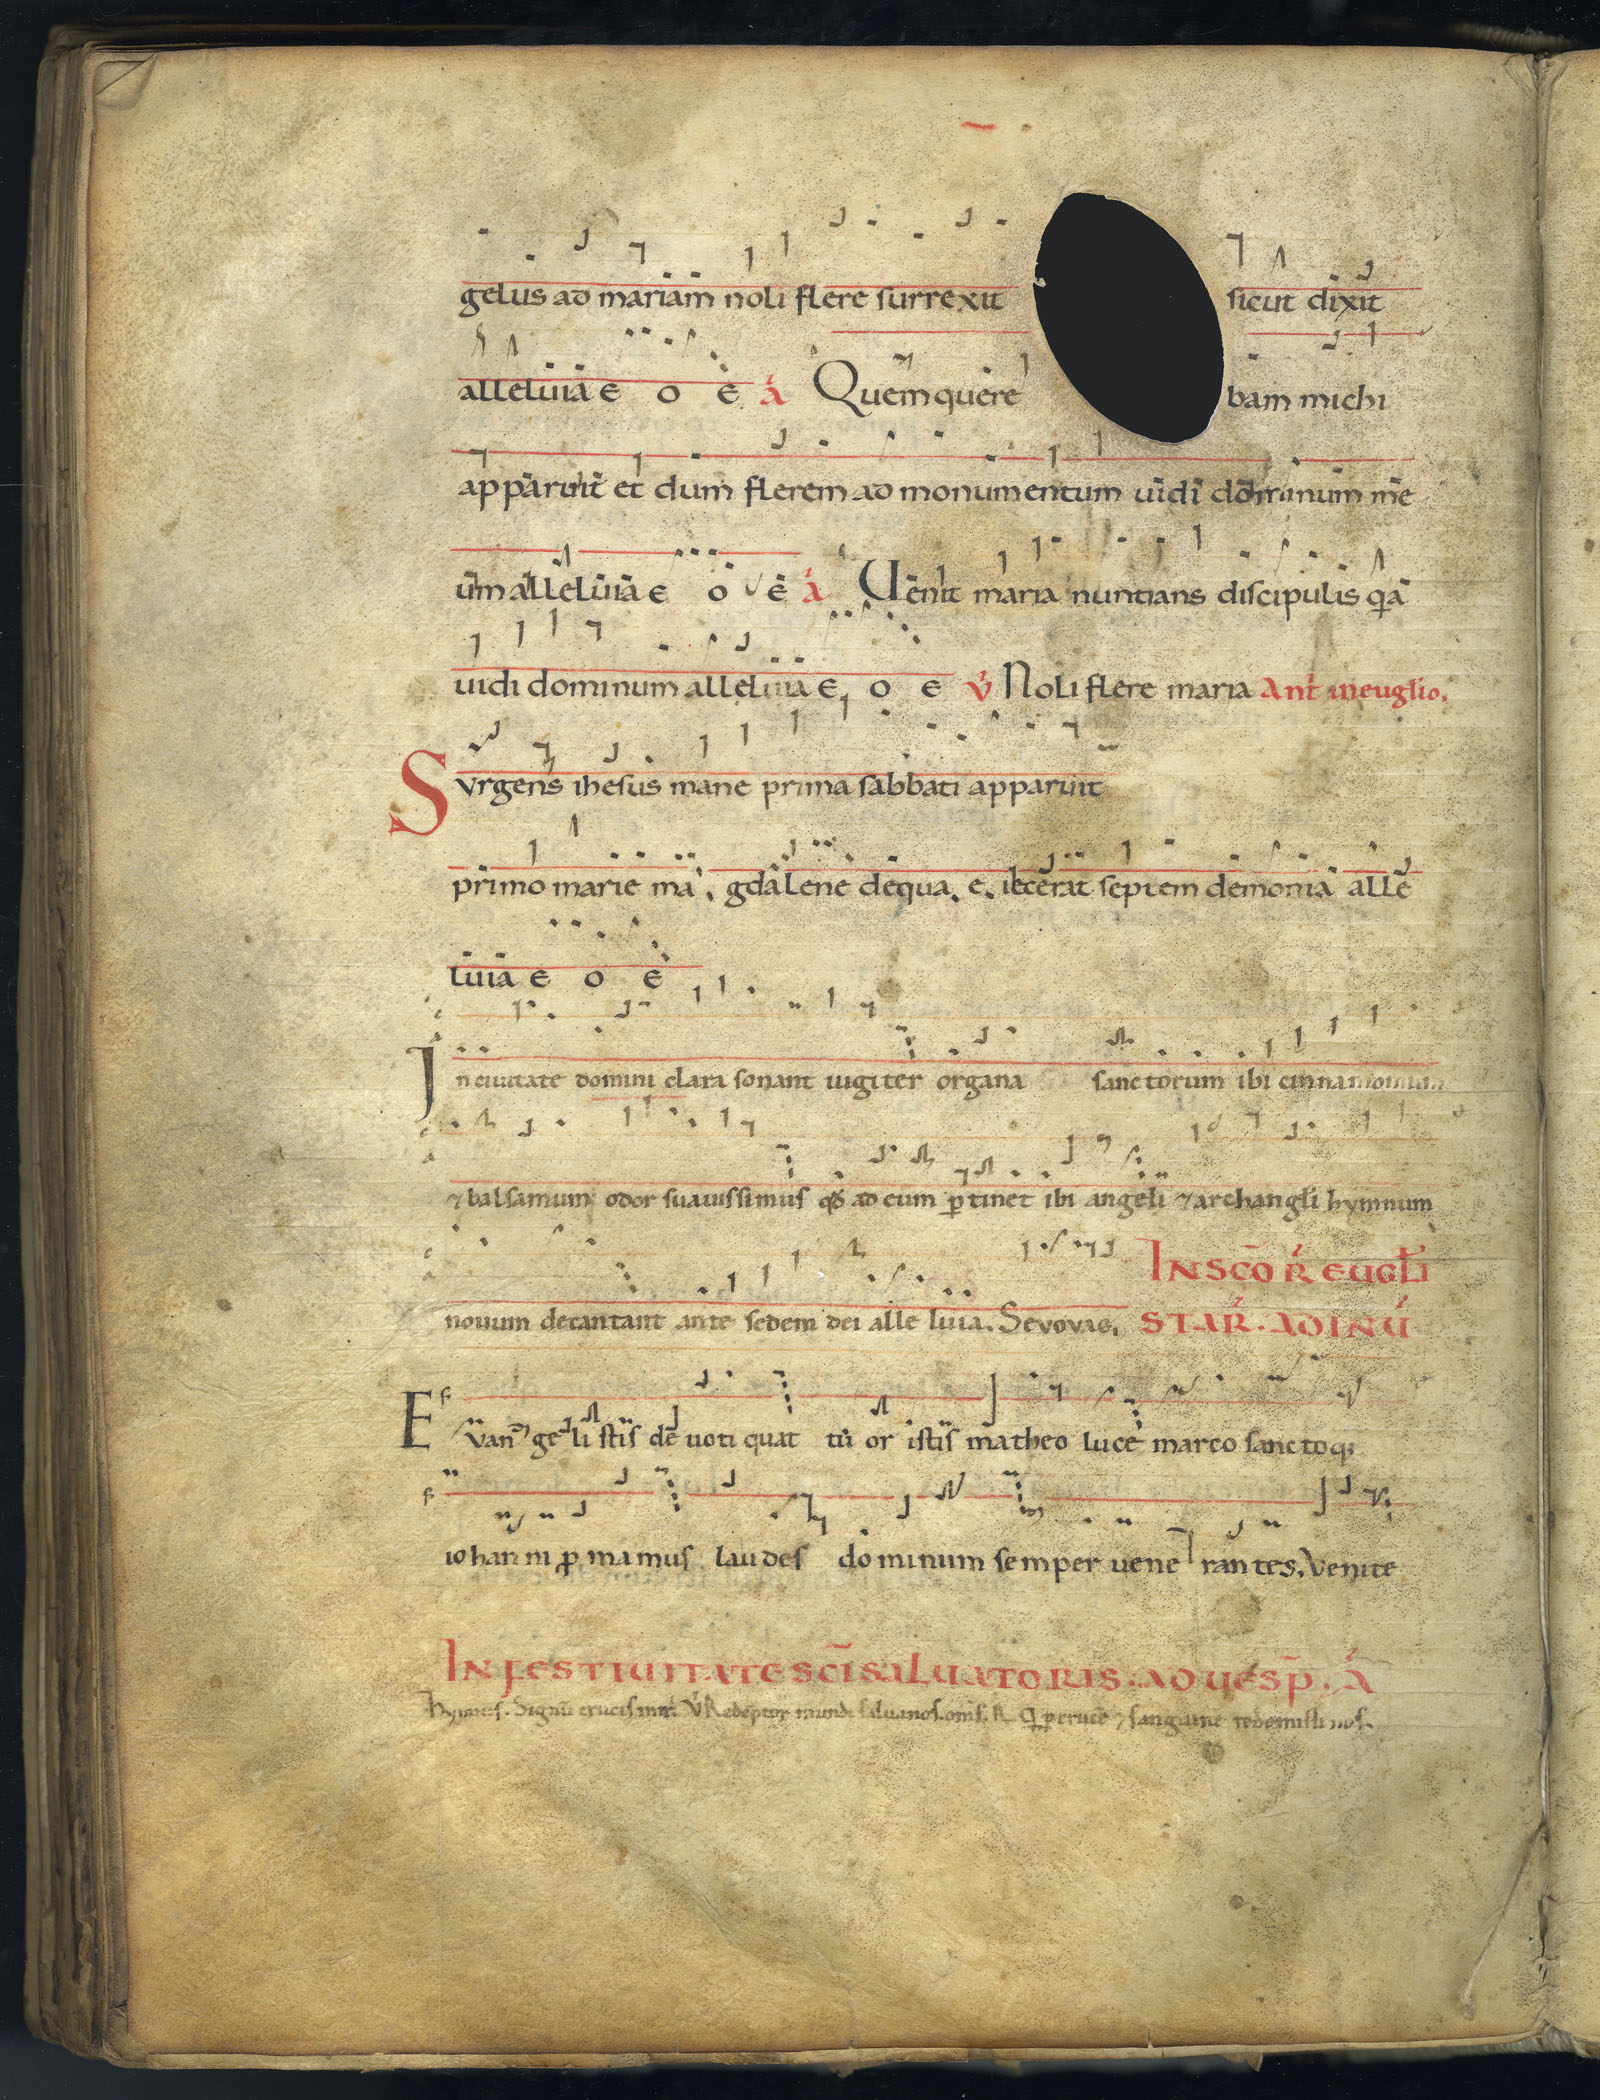 gelus ad mariam noli flere surrexit sicut dixit
alleluia e o e A Quem quere bam michi
apparuit et dum flerem ad monumentum uidi dominum me
um alleluia e o e A Uenit maria nuntians discipulis q̣a
uidi dominum alleluia e o e V Noli flere maria Ant in euglio.
Surgens ihesus mane prima sabbati apparuit
primo marie ma gdalene dequa e iecerat septem demonia alle
luia e o e
In ciuitate domini clara sonant iugiter organa sanctorum ibi cinnamomum
⁊ balsamum odor suauissimus qd ad eum ptinet ibi angeli ⁊ archangli hymnum
nouum decantant ante sedem dei alle luia. Sevovae. IN SCOR EUGLI
STAR. AD INU
Euan ge li stis de uoti quat tu or istis matheo luce marco sanctoq;
iohan ni p mamus laudes dominum semper uene rantes, Venite
IN FESTIUITATE SCI SALUATORIS. AD UESP. A
Hymnus. Signu crucis V Redeptor mundi saluanos. oms. R Q p cruce ⁊ sanguine redemisti nos.